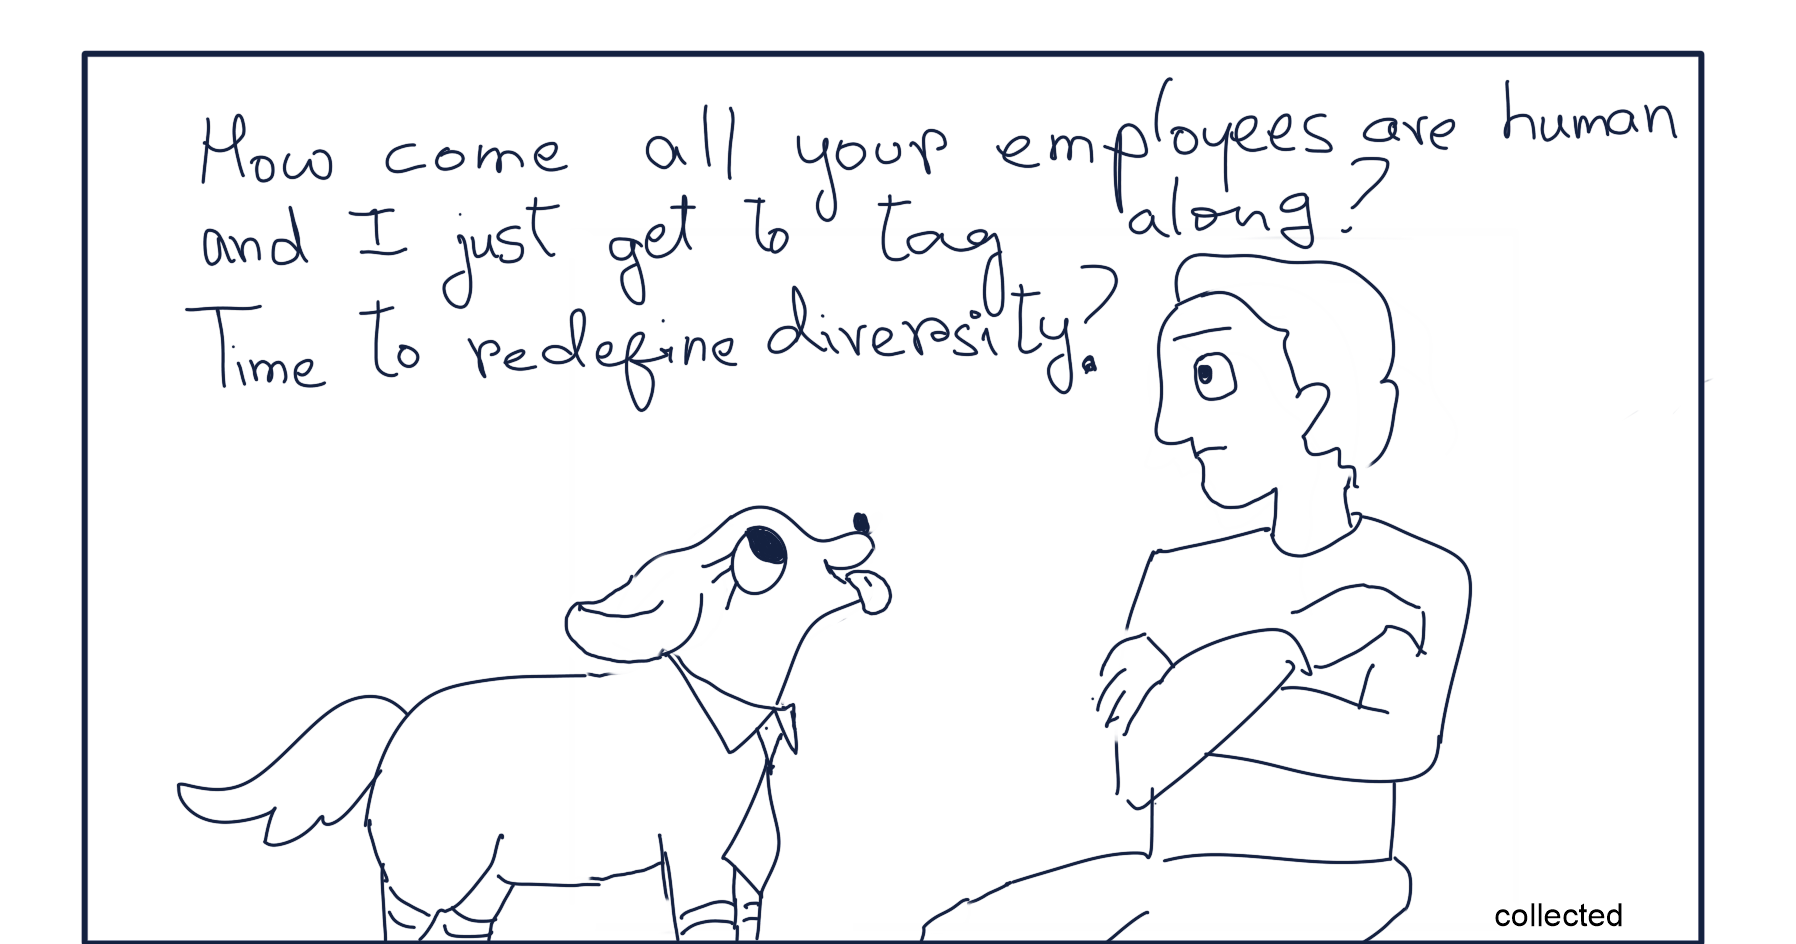 How come all your employees are human
and I just get to tag along?
Time to redefine diversity?
collected